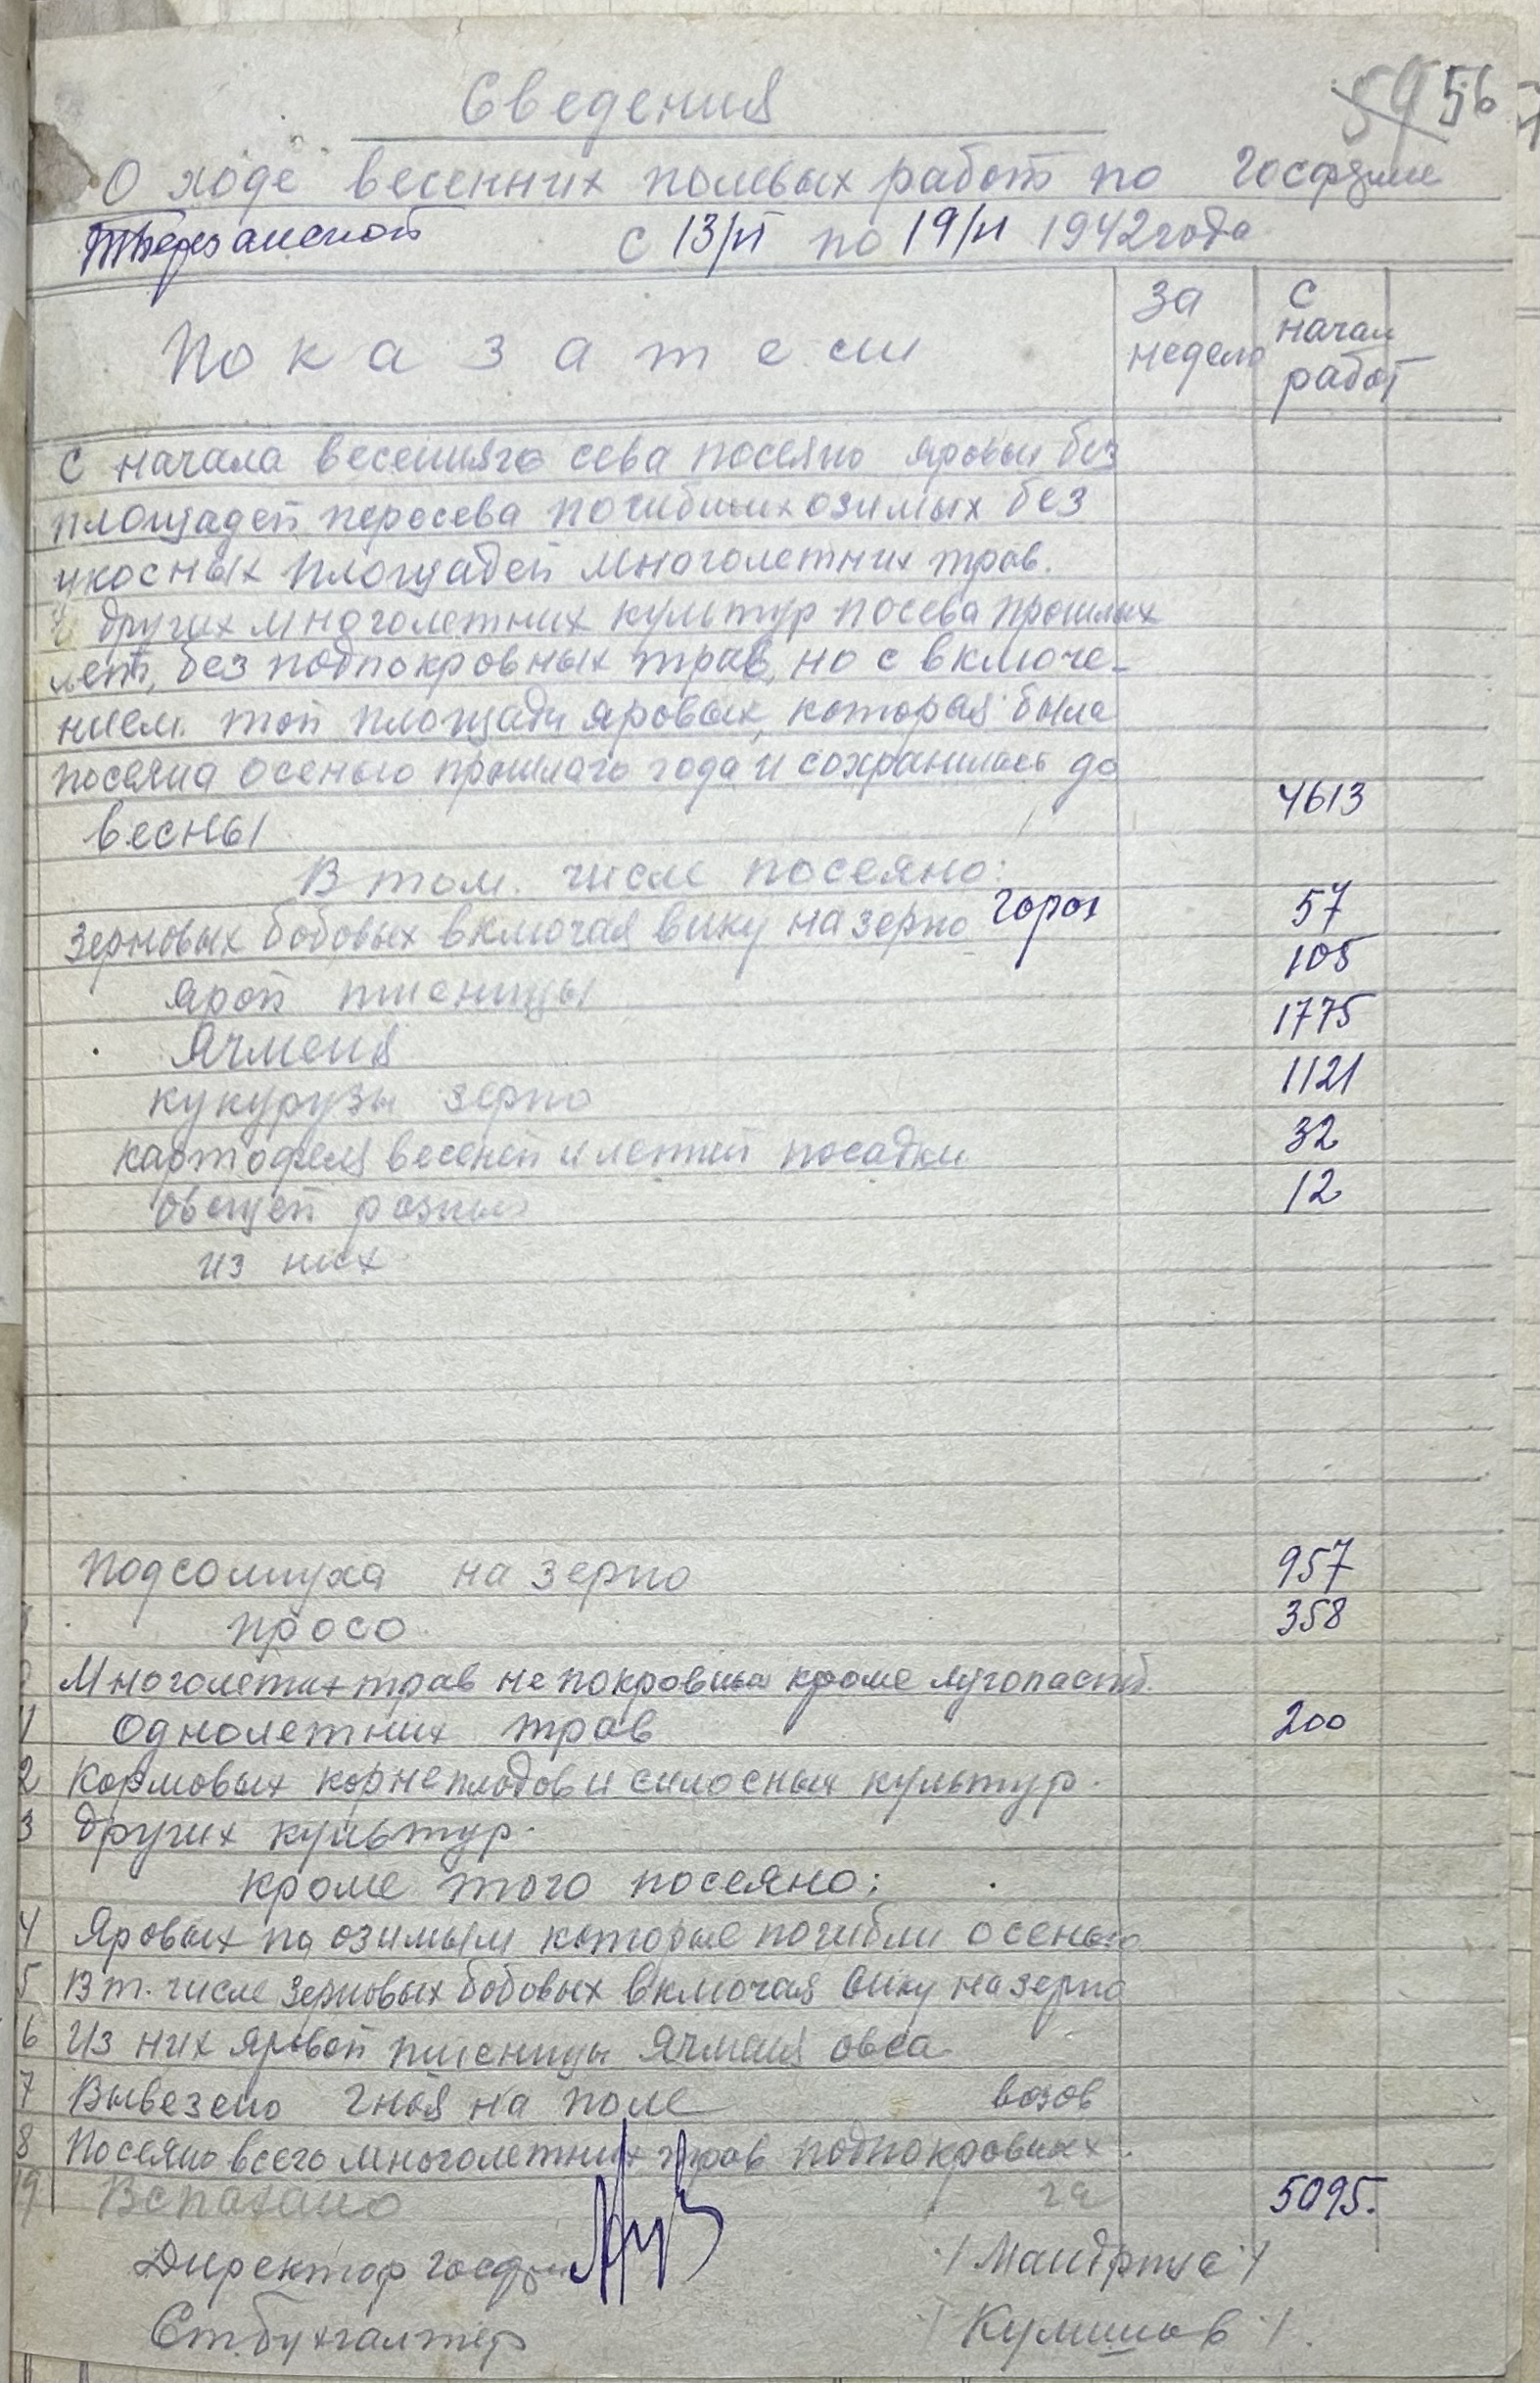 Сведения
59 56
О ходе весенних полевых работ по госферме
с 13/VI по 19/VI 1942 года
Показатели
за неделю
с начала работ
с начала весеннего сева посеяно яровых без
площадей пересева погибших озимых без
укосных площадей многолетних трав.
и других многолетних культур посева прошлых
лет, без подпокровных трав, но с включе-
нием той площади яровых, которая была
посеяна осенью прошлаго года и сохранилась до
весны 4613
В том числе посеяно:
Зерновых бобовых включая вику на зерно горох 57
ярой пшеницы 105
Ячменя 1775
кукурузы зерно 1121
картофеля весеней и летней посадки 32
овощей разных 12
из них
Подсолнуха на зерно 957
просо 358
Многолетних трав непокровных кроме лугопастб.
1 Однолетних трав 200
2 Кормовых корнеплодов и силосных культур.
3 Других культур.
кроме того посеяно:
4 Яровых по озимым которые погибли осенью
5 В т. числе зерновых бобовых включая вику на зерно
6 Из них яровой пшеницы ячменя овса
7 Вывезено гноя на поле возов
8 Посеяно всего многолетних трав подпокровных.
19 Вспахано га 5095.
Директор госфермы
Ст. бухгалтер